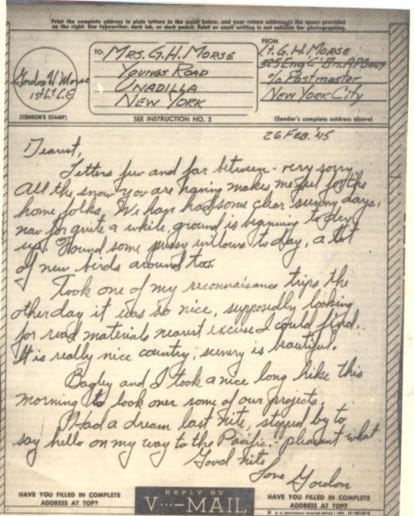 Print the complete address in plain letters in the panel below, and your return address in the space provided
on the right. Use typewriter, dark ink, or dark pencil. Faint or small writing is not suitable for photographing.
TO:
MRS. G.H. MORSE
YOUNGS ROAD
UNADILLA
NEW YORK
FROM
LT. G.H. MORSE
% Postmaster
NEW YORK CITY
Gordon H Morse
1st Lt C.E.
(CENSOR'S STAMP)
SEE INSTRUCTION NO. 2
(Sender's complete address above)
26 Feb. '45
Dearest,
Letters few and far between - very sorry
All the snow you are having makes me feel for the
home folks. We have had some clear sunny days,
now for quite a while, ground is beginning to dry
up. Found some pussy willows today, a lot
of new birds around too.
Took one of my reconnaisance trips, the
other day it was so nice, supposedly looking
for road materials nearest excuse I could find.
It is really nice country, scenery is beautiful.
Bagley and I took a nice long hike this
morning to look over some of our projects.
Had a dream last nite, stopped by to
say hello on my way to the Pacific. pleasant what
Good Nite
Love Gordon
HAVE YOU FILLED IN COMPLETE
ADDRESS AT TOP?
REPLY BY
V···—MAIL
HAVE YOU FILLED IN COMPLETE
ADDRESS AT TOP?